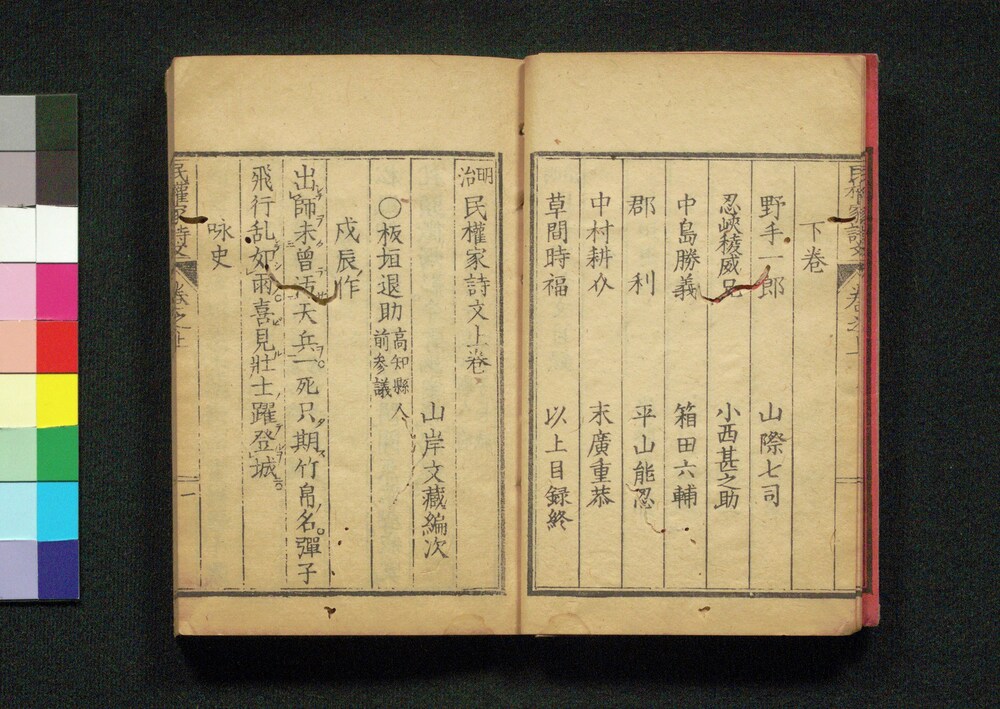 下卷
野手一郎
山際七司
忍峽稜威兄
小西甚之助
中島勝義
箱田六輔
郡利
平山能忍
中村耕仌
末廣重恭
草間時福
以上目録終
明治民權家詩文上卷
山岸文藏編次
〇板垣退助高知縣人前参議
戊辰作
出師未曾汚天兵一死只期竹帛名彈子
飛行乱如雨喜見壯士躍登城
咏史
民權家詩文
卷之上
一